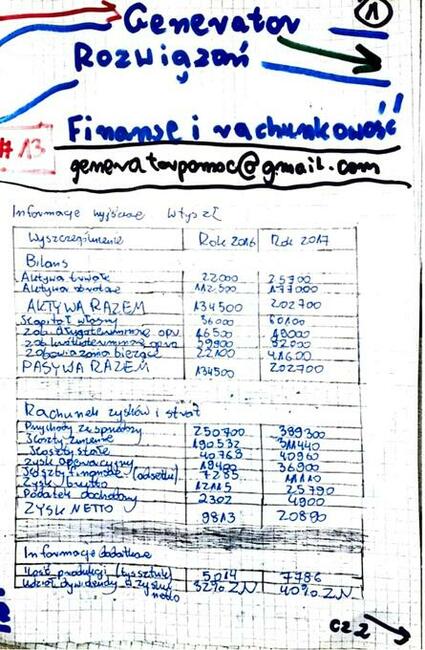 ①
Generator
Rozwiązań
Finanse i rachunkowość
#13
generatorpomoc@gmail.com
Informacje wyjściowe w tys zł
Wyszczególnienie Rok 2016 Rok 2017
Bilans
Aktywa trwałe 22000 25700
Aktywa obrotowe 112500 177000
AKTYWA RAZEM 134500 202700
Kapitał własny 36000 60100
zob. długoterminowe opr. 16500
zob. krótkoterminowe opr. 59900 82000
zobowiązania bieżące 22100 41600
PASYWA RAZEM 134500 202700
Rachunek zysków i strat
Przychody ze sprzedaży 250700 389300
Koszty zmienne 190532 311440
Koszty stałe 40768 40960
Zysk operacyjny 19400 36900
Koszty finansowe (odsetki) 7285 11110
Zysk brutto 12115 25790
Podatek dochodowy 2302 4900
ZYSK NETTO 9813 20890
Informacje dodatkowe
Ilość produkcji (tys sztuk) 5014 7786
udział dywidendy w zysku netto 32% Z.N. 40% Z.N.
cz 2